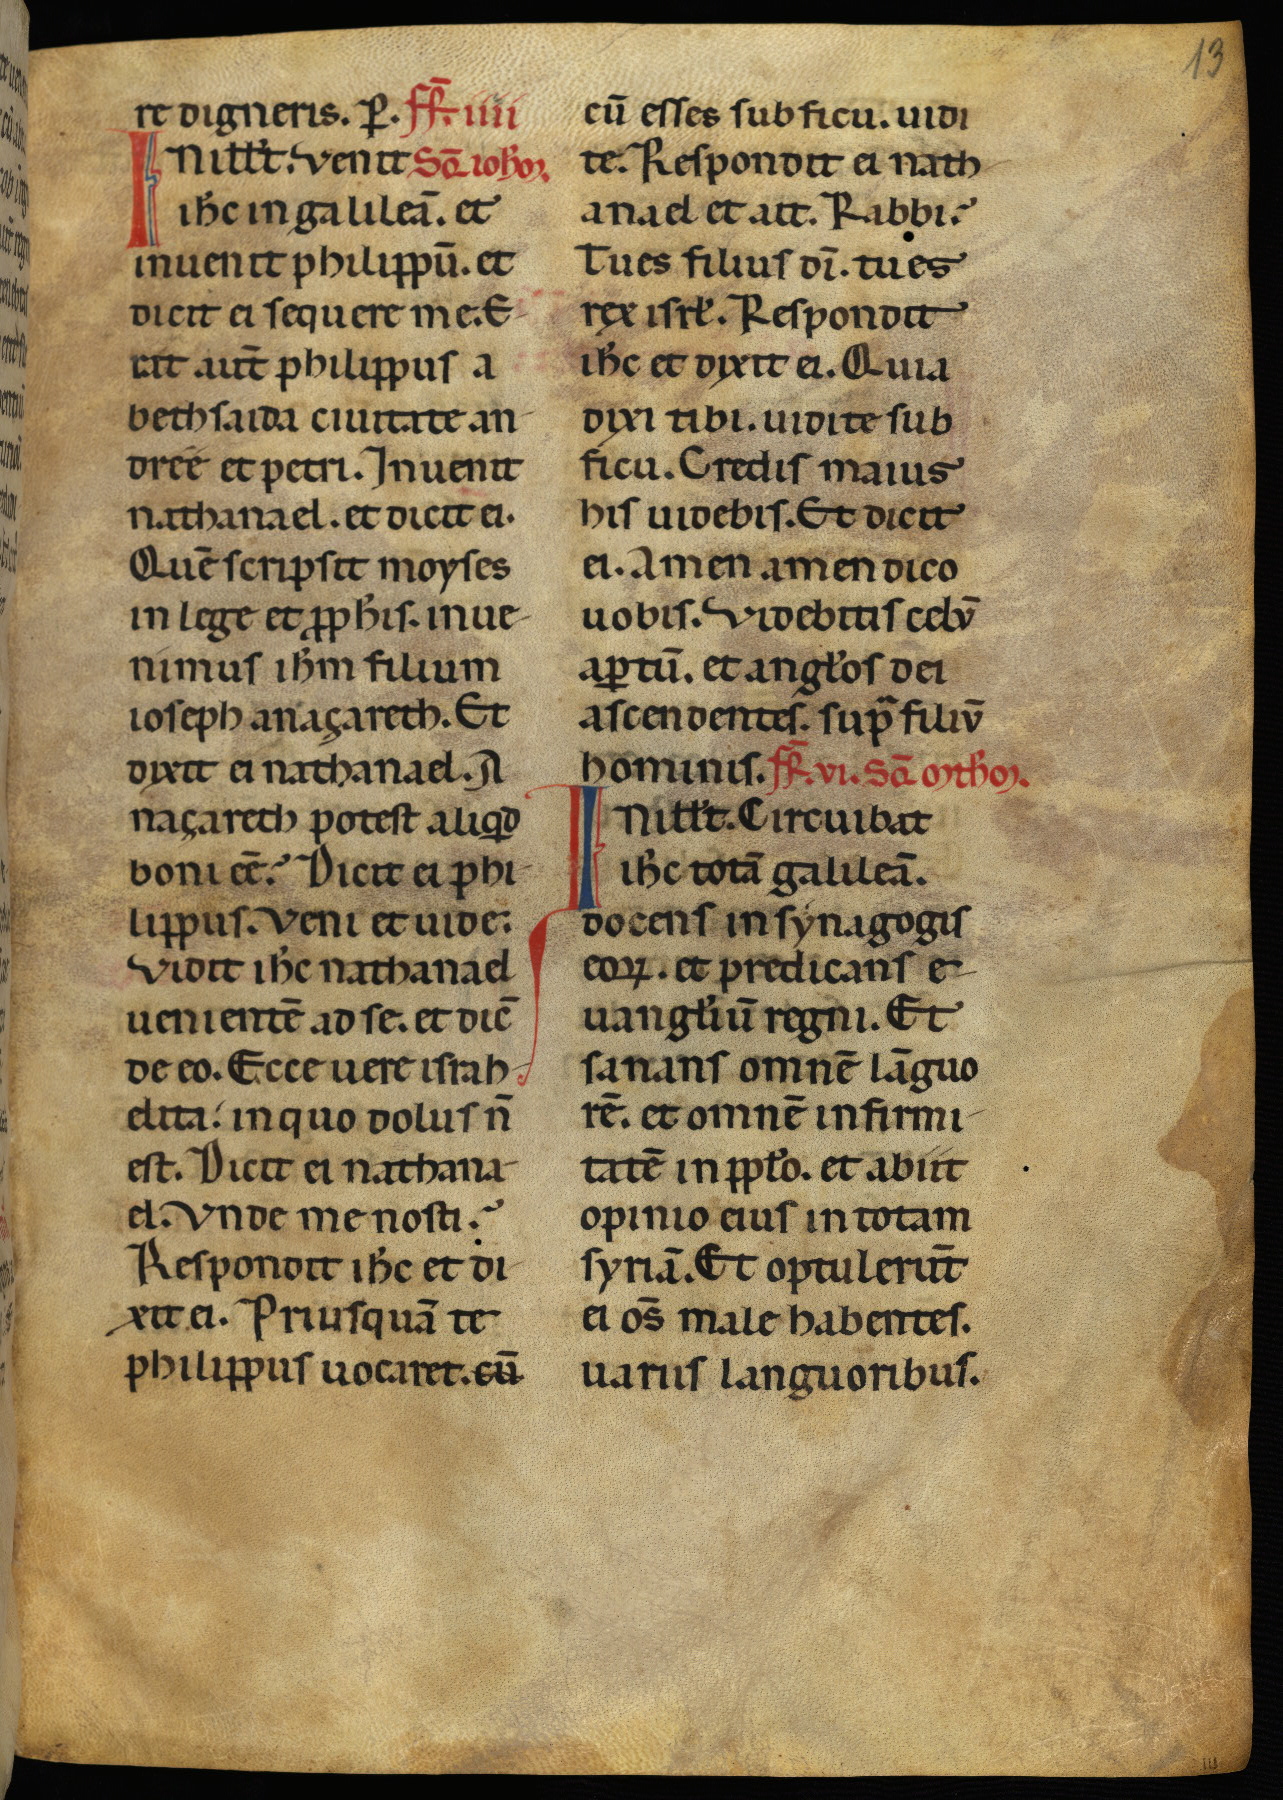 13
re digneris. P. FR̄. iiii
IN ill't. venit Sc̄d. ioh'oꝫ.
ih̄c in galileā. et
inuenit philippū. et
dicit ei sequere me. E
rat aut̄ philippus a
bethsaida ciuitate an
dree et petri. Inuenit
nathanael. et dicit ei.
Quē scripsit moyses
in lege et ꝓph̄is. inue-
nimus ih̄m filium
ioseph anaçareth. Et
dixit ei nathanael. A
naçareth potest aliqd
boni eē? Dicit ei phi-
lippus. Veni et uide:
Vidit ih̄c nathanael
uenientē ad se. et dic̄
de eo. Ecce uere israh-
elita: in quo dolus n̄
est. Dicit ei nathana-
el. Vnde me nosti?
Respondit ih̄c et di-
xit ei. Priusquā te
philippus uocaret. cū
cū esses sub ficu. uidi
te. Respondit ei nath
anael et ait. Rabbi?
Tu es filius dī. tu es
rex isrł. Respondit
ih̄c et dixit ei. Quia
dixi tibi. uidi te sub
ficu. Credis maius
his uidebis. Et dicit
ei. Amen amen dico
uobis. Videbitis celū
aꝑtū. et angłos dei
ascendentes. supª filiū
hominis. FR̄. vi. Sc̄d. mth'oꝫ.
IN ill't. Circuibat
ih̄c totā galileā.
docens in synagogis
eoꝝ. et predicans e-
uangłiū regni. Et
sanans omnē lāguo
rē. et omnē infirmi-
tatē in ppło. et abiit
opinio eius in totam
syriā. Et optulerūt
ei os̄ male habentes.
uariis languoribus.